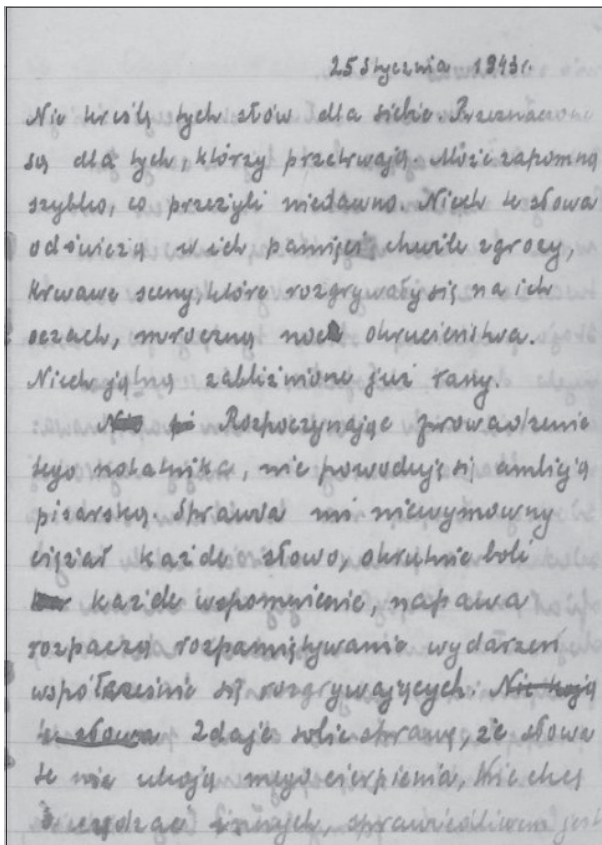 25 stycznia 1943 r.
Nie kreślę tych słów dla siebie. Przeznaczone
są dla tych, którzy przetrwają. Może zapomną
szybko, co przeżyli niedawno. Niech te słowa
odświeżą w ich pamięci chwile zgrozy,
krwawe sceny, które rozgrywały się na ich
oczach, mroczną noc okrucieństwa.
Niech zabliźnione już rany.
Rozpoczynając prowadzenie
tego notatnika, nie powoduję się ambicją
pisarską. Sprawia mi niewymowny
ciężar każde słowo, okrutnie boli
każde wspomnienie, napawa
rozpaczą rozpamiętywanie wydarzeń
współcześnie się rozgrywających. Nie koją
te słowa Zdaję sobie sprawę, że słowa
te nie ukoją mego cierpienia, Nie chcę
, sprawiedliwem jest